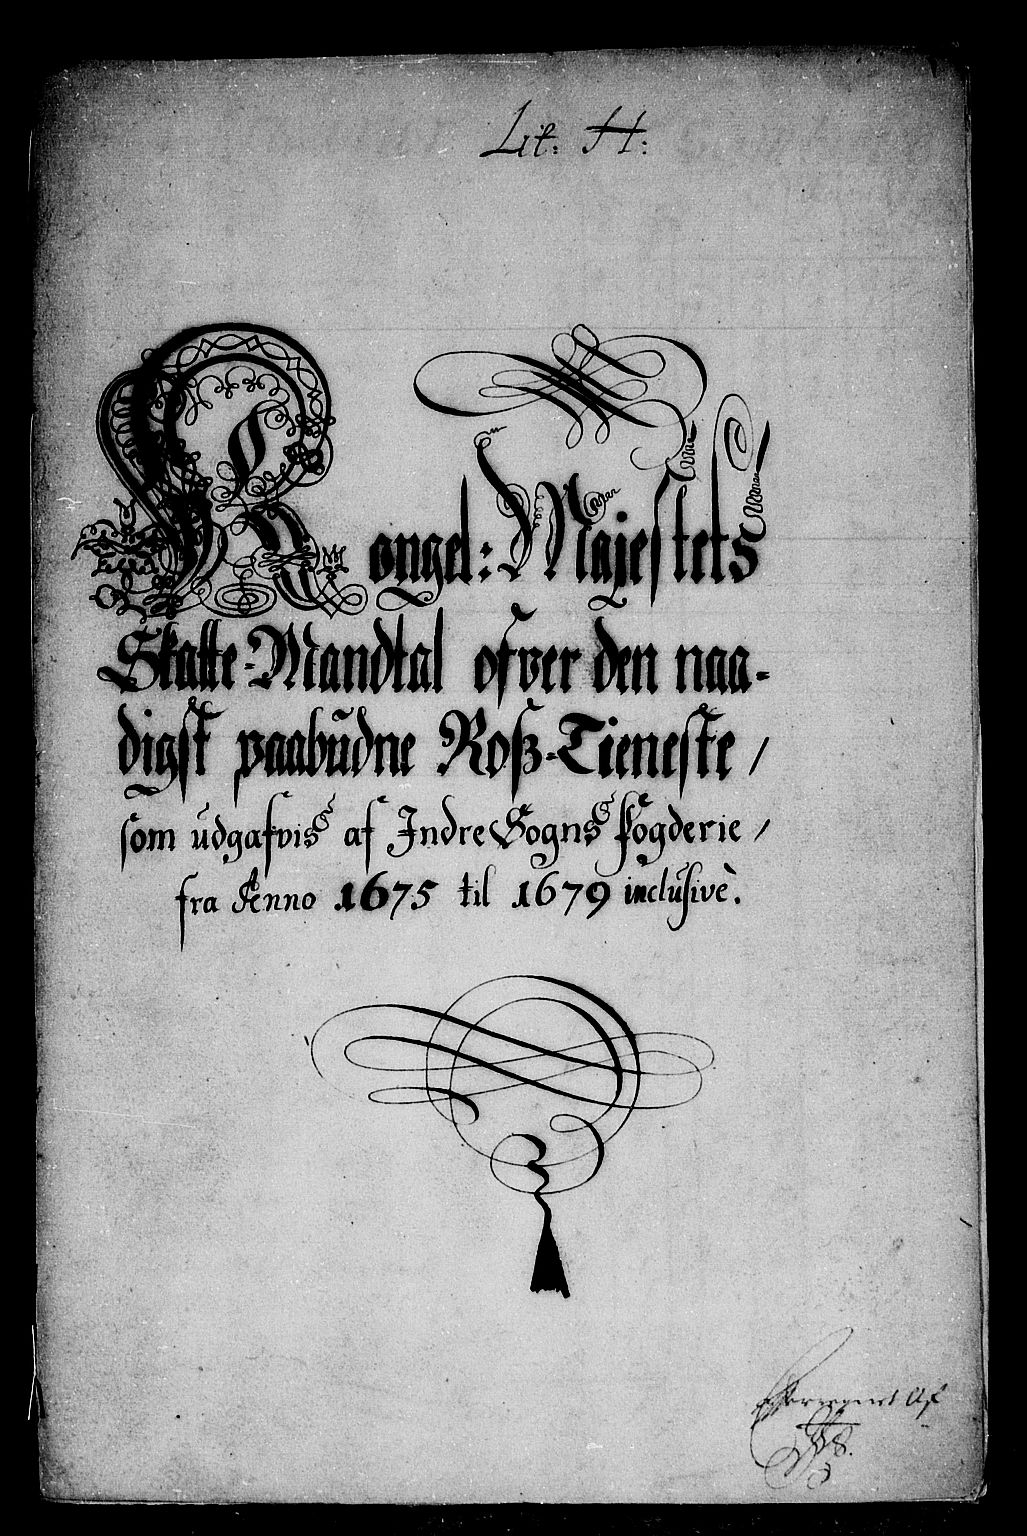 Lit: H:
Kongel: Majestets
Skatte-Mandtal ofver den naa-
digst paabudne Roß-Tieneste /
som udgafvis af Indre Sogns Fogderie /
fra Anno 1675 til 1679 inclusive.
Af